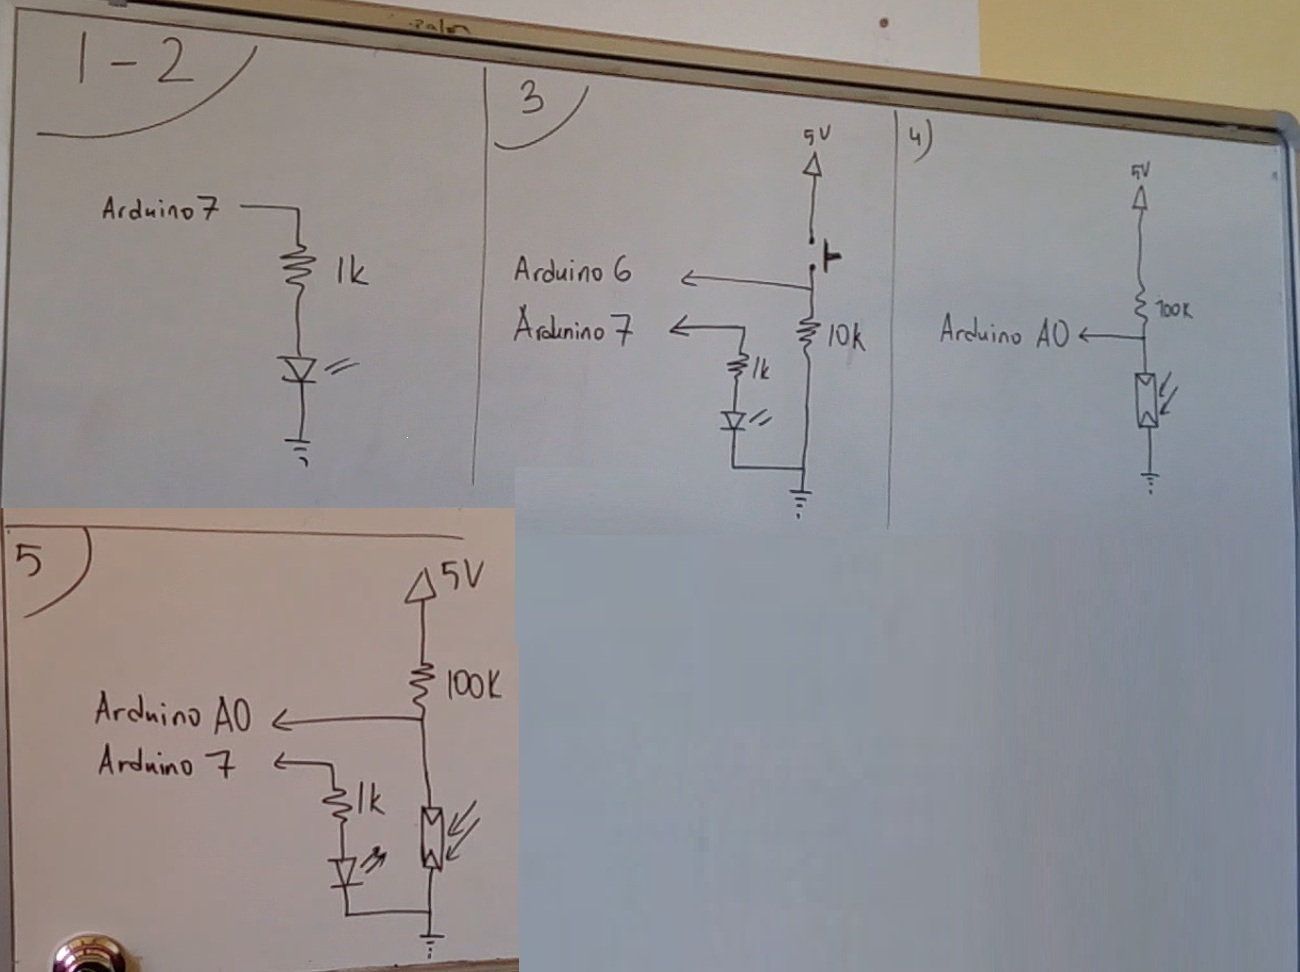 1-2
Arduino 7
1k
3
5V
Arduino 6
Ardunino 7
10k
1k
4)
5V
100K
Arduino A0
5
5V
100K
Arduino A0
Arduino 7
1k